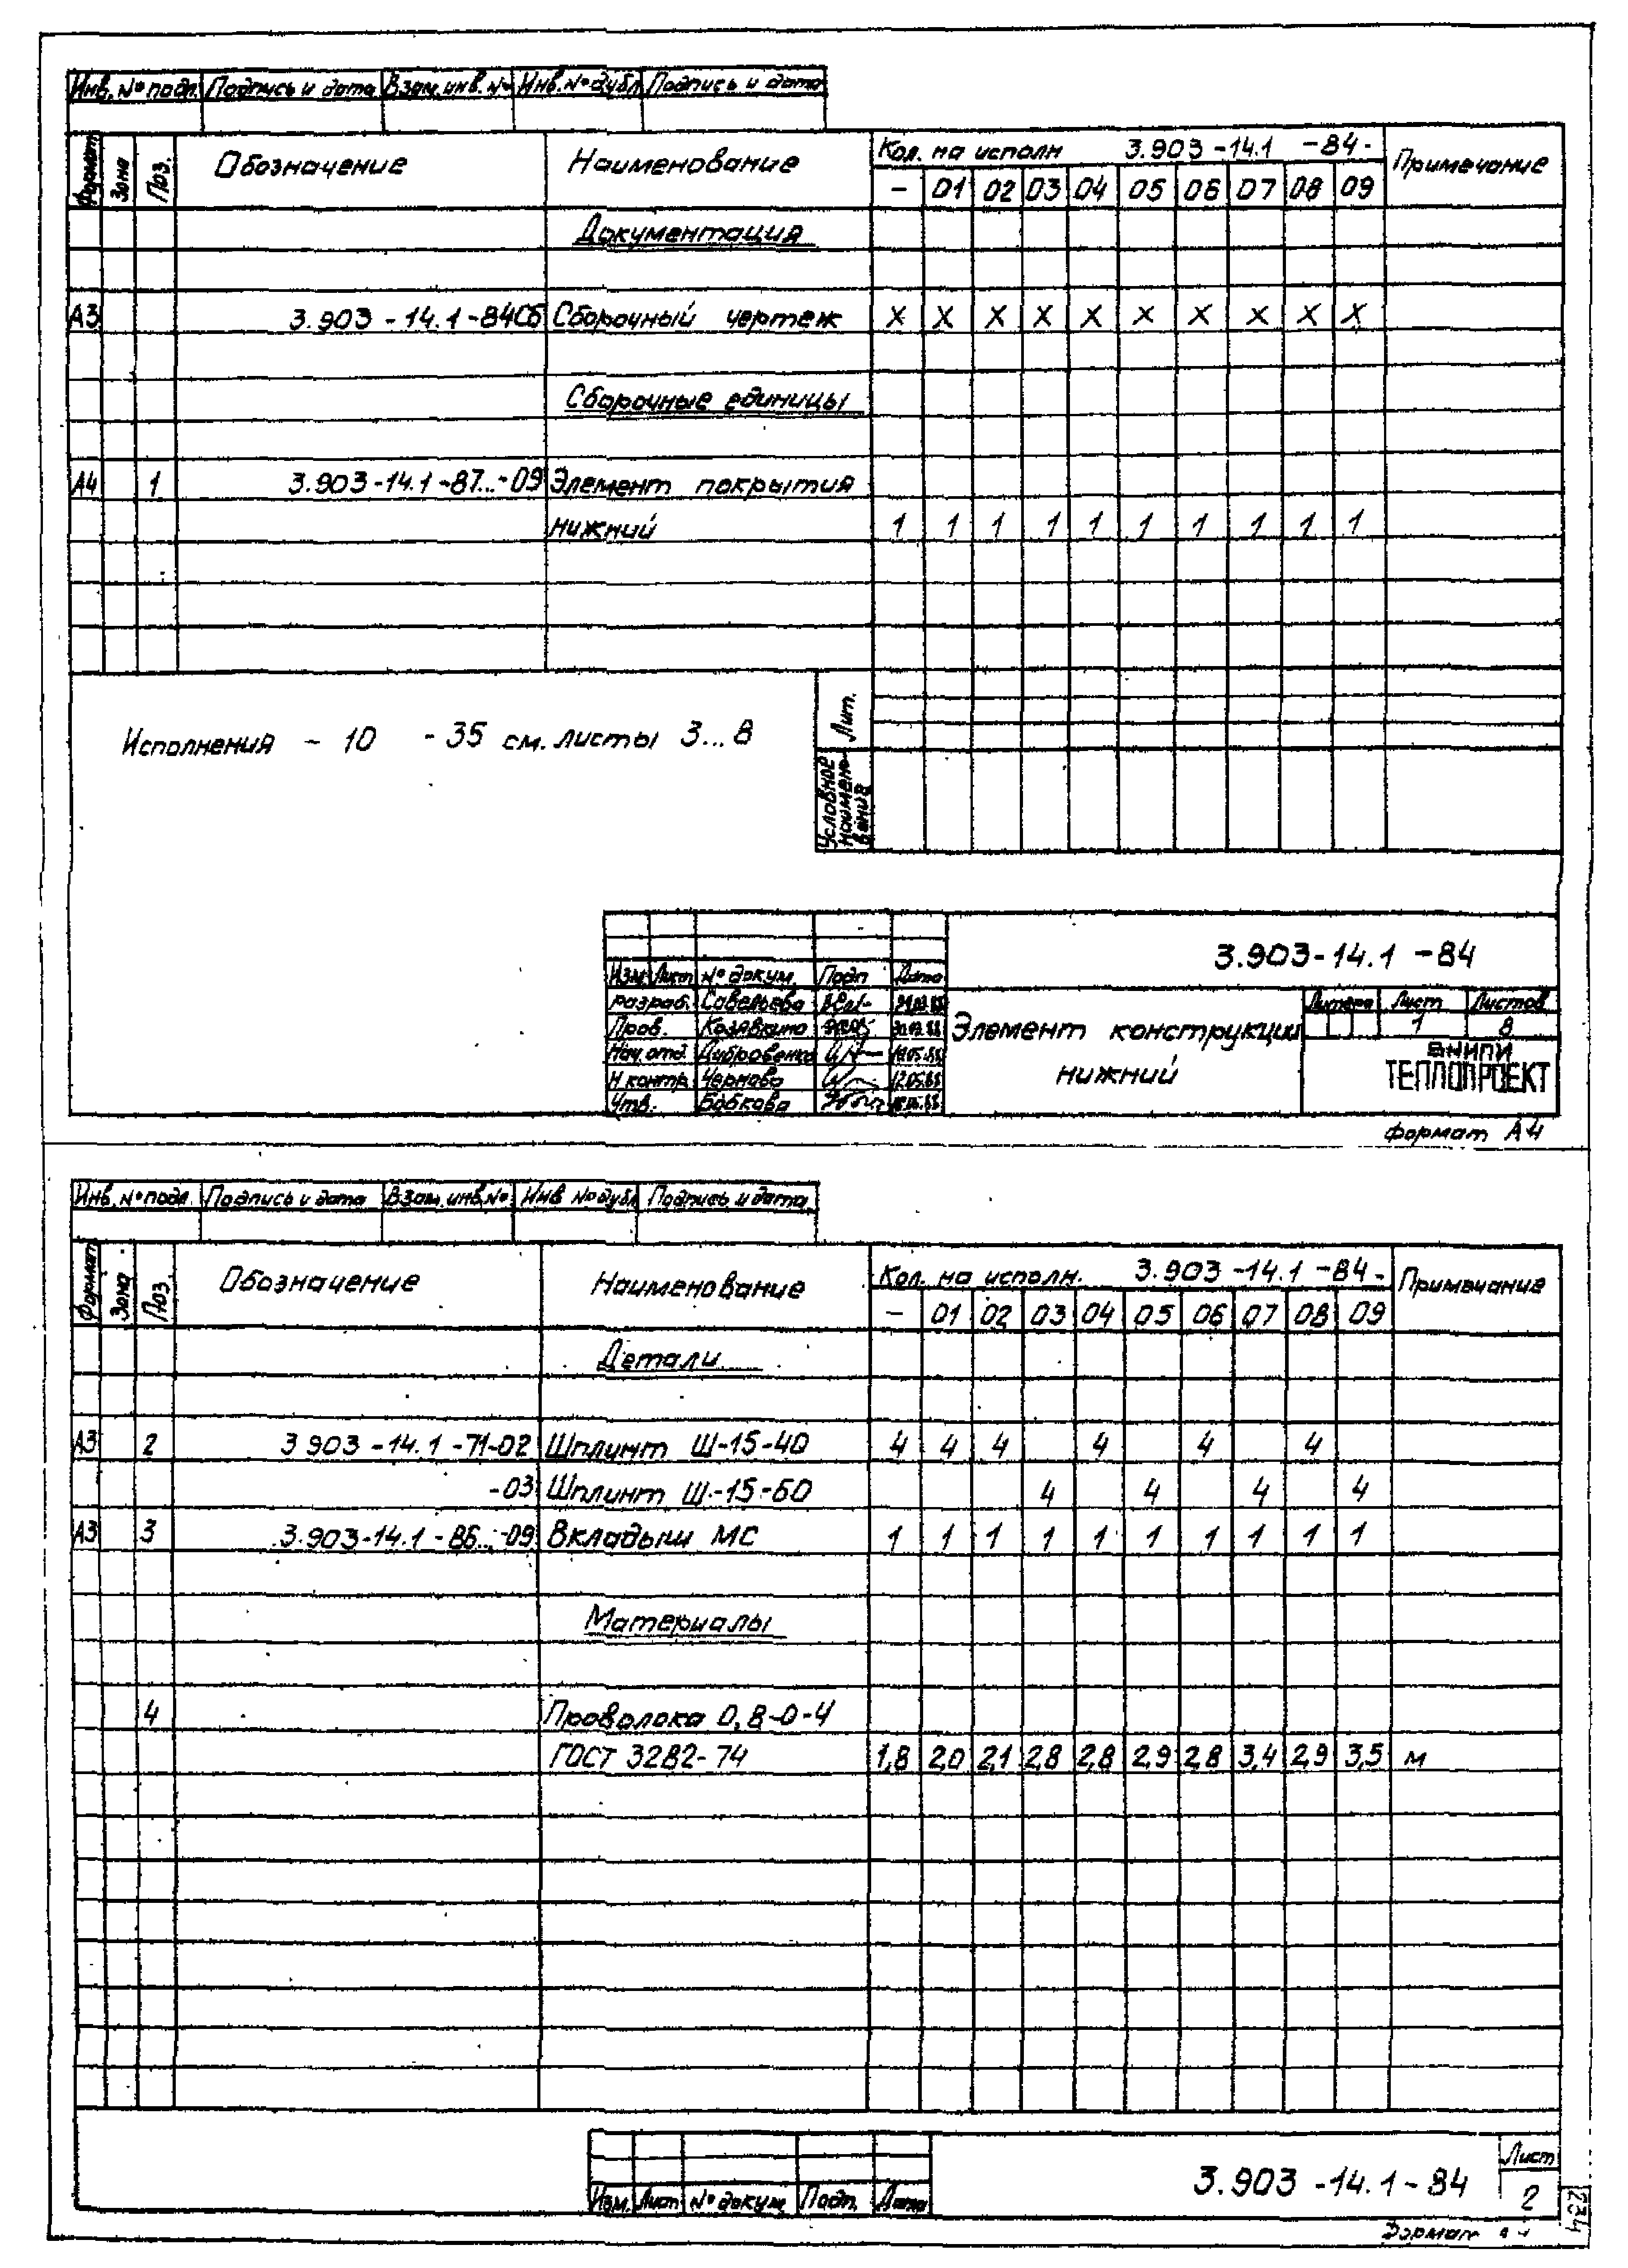 Инв. № подл. Подпись и дата Взам. инв. № Инв. № дубл Подпись и дата
Формат Зона Поз. Обозначение Наименование Кол. на исполн 3.903-14.1 -84- Примечание
- 01 02 03 04 05 06 07 08 09
Документация
А3 3.903-14.1-84СБ Сборочный чертеж X X X X X X X X X X
Сборочные единицы
А4 1 3.903-14.1-87...-09 Элемент покрытия
нижний 1 1 1 1 1 1 1 1 1 1
Исполнения - 10 - 35 см. листы 3...8
Лит.
Условное наименование
3.903-14.1 -84
Изм Лист № докум. Подп Дата
Разраб. Савельева
Пров. Козявкина
Нач. отд. Дубровенко
Н контр Чернова
Утв. Бобкова
Элемент конструкции
нижний
Литера Лист Листов
1 8
ВНИПИ
ТЕПЛОПРОЕКТ
Формат А4
Инв. № подл. Подпись и дата Взам. инв. № Инв № дубл Подпись и дата
Формат Зона Поз. Обозначение Наименование Кол. на исполн. 3.903-14.1-84- Примечание
- 01 02 03 04 05 06 07 08 09
Детали
А3 2 3 903-14.1-71-02 Шплинт Ш-15-40 4 4 4 4 4 4
-03 Шплинт Ш-15-60 4 4 4 4
А3 3 3.903-14.1-86...-09 Вкладыш МС 1 1 1 1 1 1 1 1 1 1
Материалы
4 Проволока 0,8-0-4
ГОСТ 3282-74 1,8 2,0 2,1 2,8 2,8 2,9 2,8 3,4 2,9 3,5 м
3.903-14.1-84
Лист
2
Изм. Лист № докум Подп. Дата
Формат
234